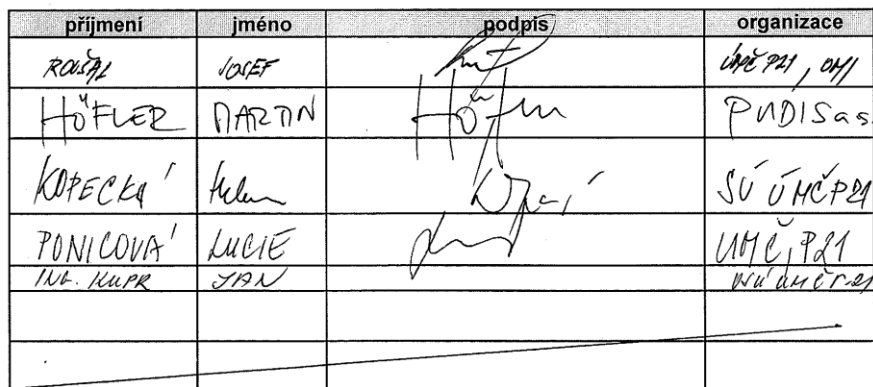 příjmení jméno podpis organizace
ROUŠAL JOSEF ÚMČ P21, OMI
HÖFLER MARTIN PUDIS a.s.
KOPECKÁ Helena SÚ ÚMČ P21
PONICOVÁ LUCIE UMČ, P21
ING. KUPR JAN ÚMČ P-21